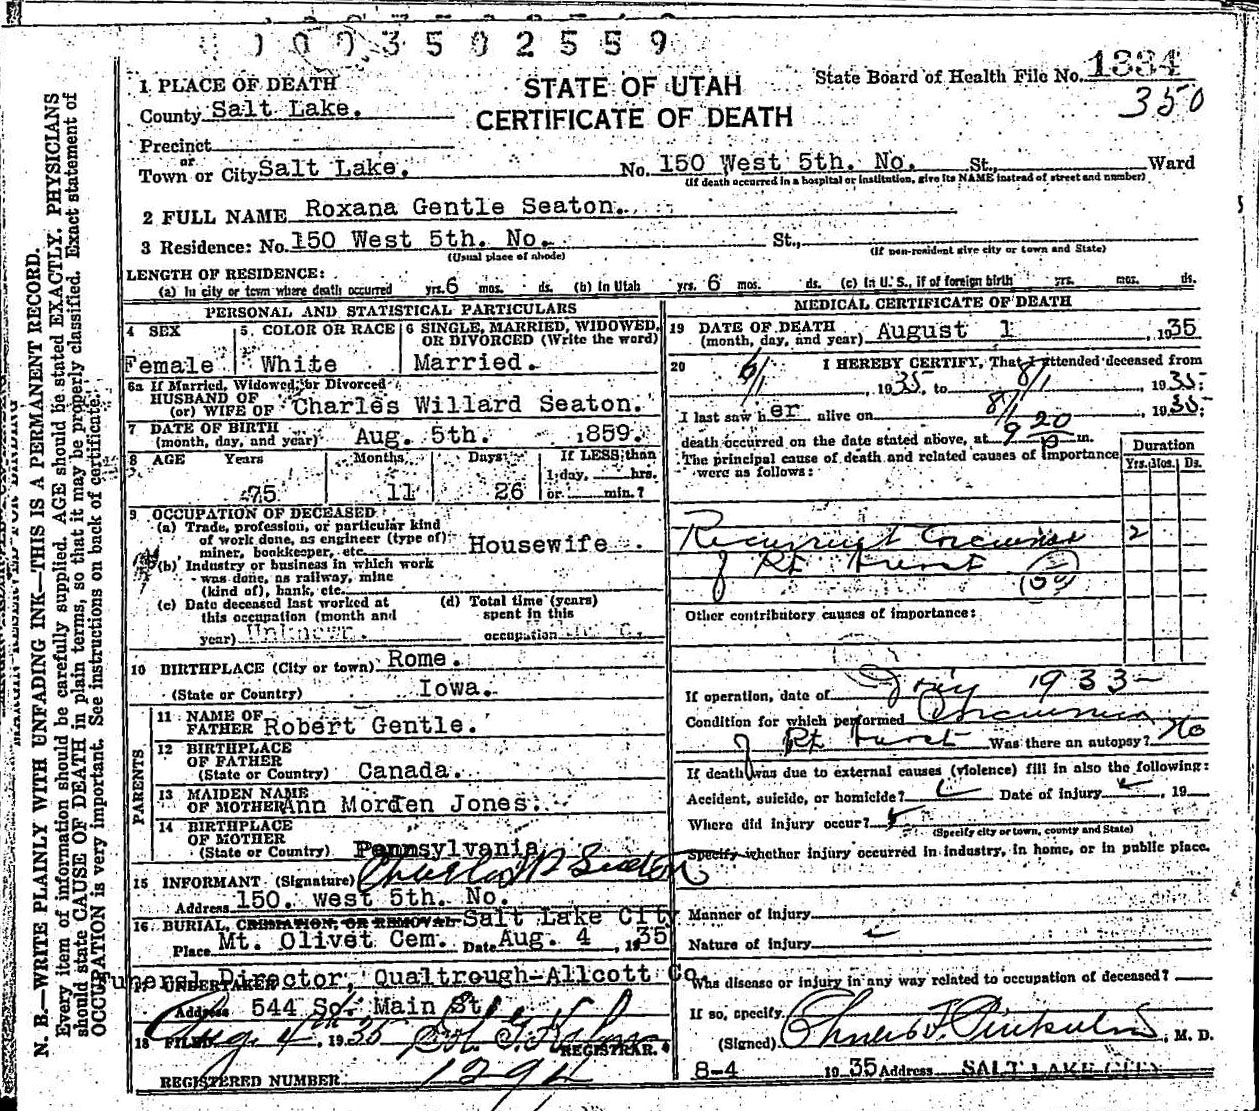 0003502559
STATE OF UTAH
CERTIFICATE OF DEATH
State Board of Health File No. 1334
350
1 PLACE OF DEATH
County Salt Lake.
Precinct
or
Town or City Salt Lake. No. 150 West 5th. No. St., Ward
(If death occurred in a hospital or institution, give its NAME instead of street and number)
2 FULL NAME Roxana Gentle Seaton.
3 Residence: No. 150 West 5th. No. St.,
(Usual place of abode) (If non-resident give city or town and State)
LENGTH OF RESIDENCE:
(a) In city or town where death occurred yrs. 6 mos. ds. (b) In Utah yrs. 6 mos. ds. (c) In U. S., if of foreign birth yrs. mos. ds.
PERSONAL AND STATISTICAL PARTICULARS
4 SEX
Female
5. COLOR OR RACE
White
6 SINGLE, MARRIED, WIDOWED, OR DIVORCED (Write the word)
Married.
6a If Married, Widowed, or Divorced
HUSBAND OF
(or) WIFE OF Charles Willard Seaton.
7 DATE OF BIRTH
(month, day, and year) Aug. 5th. 1859.
8 AGE Years Months Days If LESS than
1 day, hrs.
75 11 26 or min.?
9 OCCUPATION OF DECEASED
(a) Trade, profession, or particular kind
of work done, as engineer (type of)
miner, bookkeeper, etc. Housewife
(b) Industry or business in which work
was done, as railway, mine
(kind of), bank, etc.
(c) Date deceased last worked at
this occupation (month and
year) Unknown.
(d) Total time (years)
spent in this
occupation
10 BIRTHPLACE (City or town) Rome.
(State or Country) Iowa.
PARENTS
11 NAME OF
FATHER Robert Gentle.
12 BIRTHPLACE
OF FATHER
(State or Country) Canada.
13 MAIDEN NAME
OF MOTHER Ann Morden Jones.
14 BIRTHPLACE
OF MOTHER
(State or Country) Pennsylvania
15 INFORMANT (Signature) Charles W Seaton
Address 150. west 5th. No.
16 BURIAL, CREMATION, OR REMOVAL Salt Lake City
Place Mt. Olivet Cem. Date Aug. 4, 1935
17 UNDERTAKER Funeral Director, Qualtrough-Allcott Co.
Address 544 So. Main St.
18 FILED Aug. 4th 1935
REGISTRAR.
REGISTERED NUMBER 1294
MEDICAL CERTIFICATE OF DEATH
19 DATE OF DEATH
(month, day, and year) August 1, 1935
20 I HEREBY CERTIFY, That I attended deceased from
6/1, 1935, to 8/1, 1935;
I last saw her alive on 8/1, 1935;
death occurred on the date stated above, at 9 20 p m.
The principal cause of death and related causes of importance
were as follows:
Duration
Yrs. Mos. Ds.
Recurrent Carcinoma 2
of Rt breast
(50)
Other contributory causes of importance:
If operation, date of July 1933
Condition for which performed Carcinoma
of Rt breast Was there an autopsy? No
If death was due to external causes (violence) fill in also the following:
Accident, suicide, or homicide? Date of injury , 19
Where did injury occur?
(Specify city or town, county and State)
Specify whether injury occurred in industry, in home, or in public place.
Manner of injury
Nature of injury
Was disease or injury in any way related to occupation of deceased?
If so, specify
(Signed) , M. D.
8-4 1935 Address SALT LAKE CITY
N. B.—WRITE PLAINLY WITH UNFADING INK—THIS IS A PERMANENT RECORD.
Every item of information should be carefully supplied. AGE should be stated EXACTLY. PHYSICIANS
should state CAUSE OF DEATH in plain terms, so that it may be properly classified. Exact statement of
OCCUPATION is very important. See instructions on back of certificate.